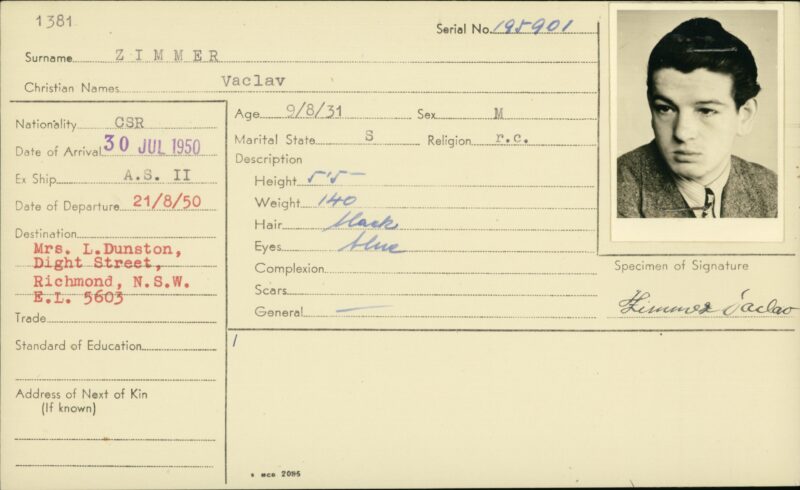 1381
Serial No. 195901
Surname ZIMMER
Christian Names Vaclav
Nationality CSR
Date of Arrival 30 JUL 1950
Ex Ship A.S. II
Date of Departure 21/8/50
Destination
Mrs. L.Dunston,
Dight Street,
Richmond, N.S.W.
E.L. 5603
Trade
Standard of Education
Address of Next of Kin
(If known)
Age 9/8/31 Sex M
Marital State S Religion r.c.
Description
Height 5'5-
Weight 140
Hair black
Eyes blue
Complexion
Scars
General —
Specimen of Signature
Zimmer Vaclav
MCD 2086